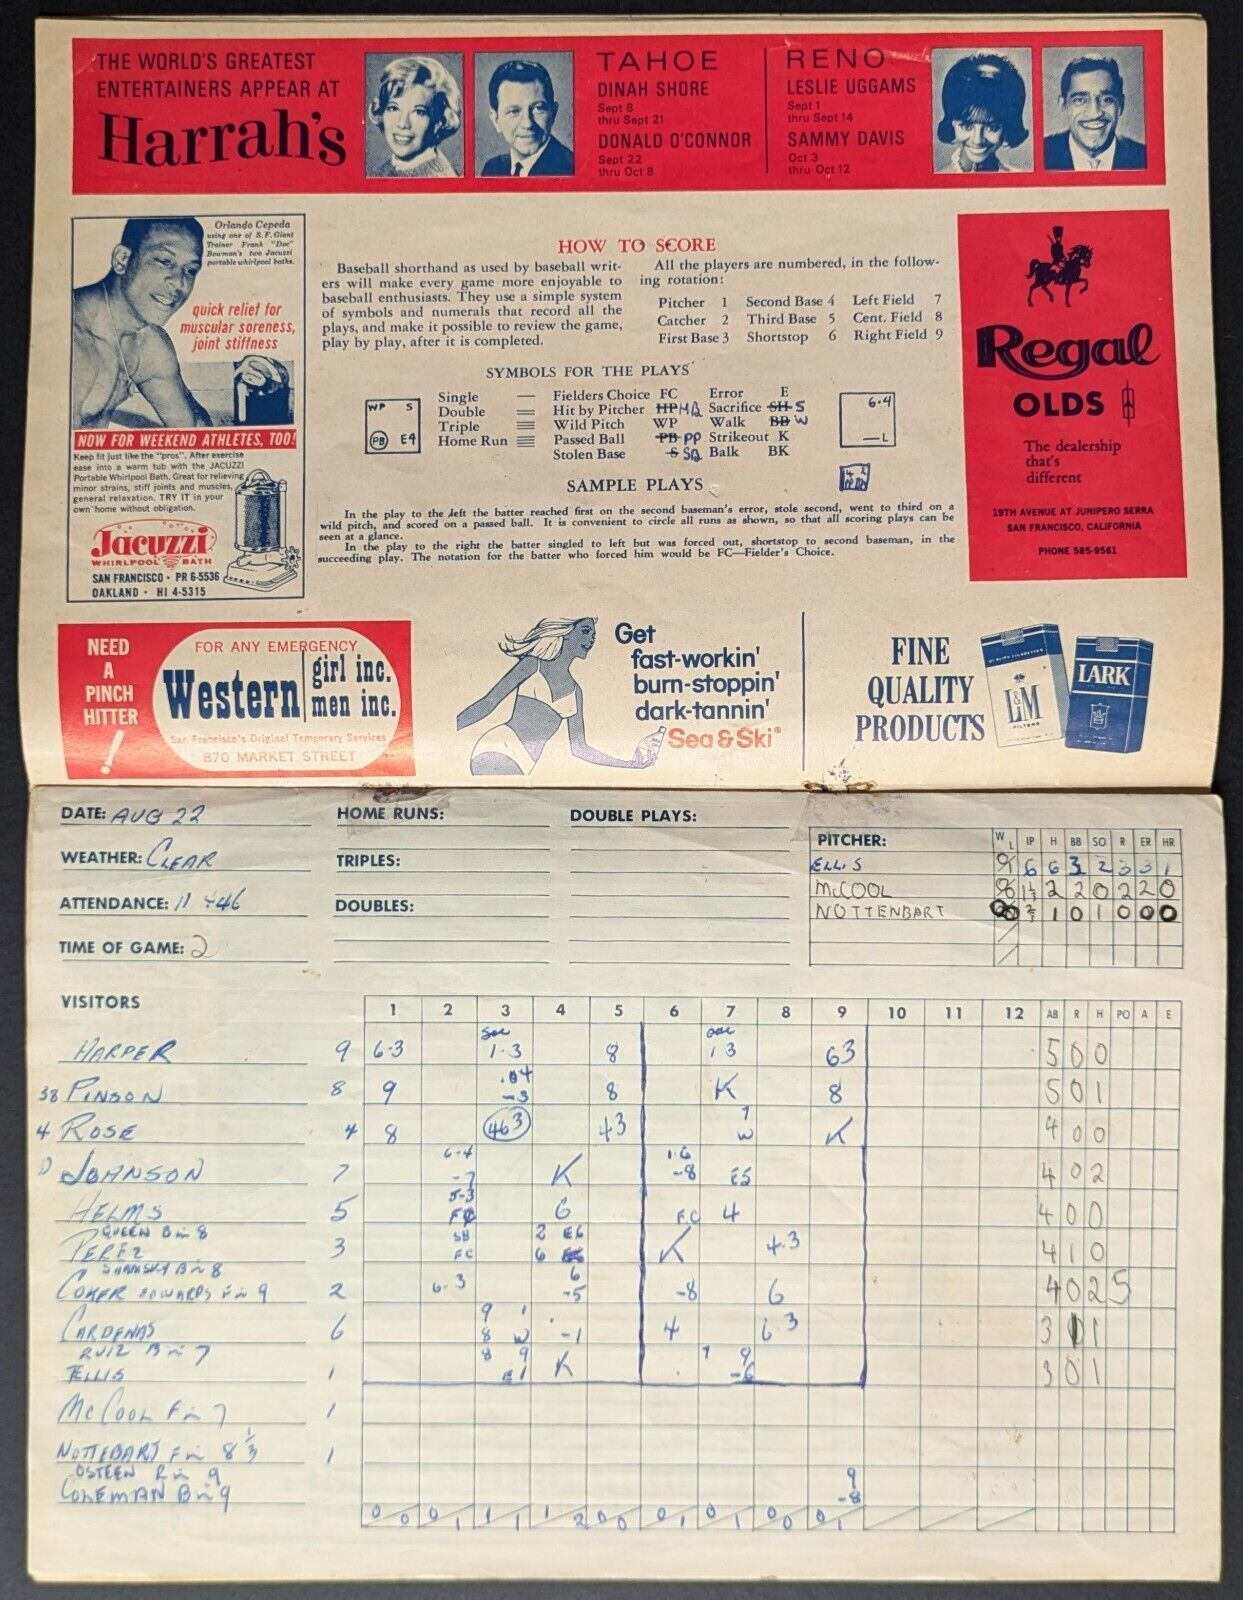 THE WORLD'S GREATEST
ENTERTAINERS APPEAR AT
Harrah's
TAHOE
DINAH SHORE
Sept 8
thru Sept 21
DONALD O'CONNOR
Sept 22
thru Oct 8
RENO
LESLIE UGGAMS
Sept 1
thru Sept 14
SAMMY DAVIS
Oct 3
thru Oct 12
Orlando Cepeda
using one of S.F. Giant
Trainer Frank "Doc"
Bowman's two Jacuzzi
portable whirlpool baths.
quick relief for
muscular soreness,
joint stiffness
NOW FOR WEEKEND ATHLETES, TOO!
Keep fit just like the "pros". After exercise
ease into a warm tub with the JACUZZI
Portable Whirlpool Bath. Great for relieving
minor strains, stiff joints and muscles,
general relaxation. TRY IT in your
own home without obligation.
Jacuzzi
WHIRLPOOL BATH
SAN FRANCISCO • PR 6-5536
OAKLAND • HI 4-5315
HOW TO SCORE
Baseball shorthand as used by baseball writ-
ers will make every game more enjoyable to
baseball enthusiasts. They use a simple system
of symbols and numerals that record all the
plays, and make it possible to review the game,
play by play, after it is completed.
All the players are numbered, in the follow-
ing rotation:
Pitcher 1 Second Base 4 Left Field 7
Catcher 2 Third Base 5 Cent. Field 8
First Base 3 Shortstop 6 Right Field 9
SYMBOLS FOR THE PLAYS
WP S
PB E4
Single — Fielders Choice FC Error E
Double Hit by Pitcher HP Sacrifice SH S
Triple Wild Pitch WP Walk BB W
Home Run Passed Ball PB PP Strikeout K
Stolen Base S SQ Balk BK
6-4
—L
SAMPLE PLAYS
In the play to the left the batter reached first on the second baseman's error, stole second, went to third on a
wild pitch, and scored on a passed ball. It is convenient to circle all runs as shown, so that all scoring plays can be
seen at a glance.
In the play to the right the batter singled to left but was forced out, shortstop to second baseman, in the
succeeding play. The notation for the batter who forced him would be FC—Fielder's Choice.
Regal
OLDS
The dealership
that's
different
19TH AVENUE AT JUNIPERO SERRA
SAN FRANCISCO, CALIFORNIA
PHONE 585-9561
NEED
A
PINCH
HITTER
!
FOR ANY EMERGENCY
Western girl inc.
men inc.
San Francisco's Original Temporary Services
870 MARKET STREET
Get
fast-workin'
burn-stoppin'
dark-tannin'
Sea & Ski®
FINE
QUALITY
PRODUCTS
L&M
FILTERS
LARK
DATE: AUG 22
WEATHER: CLEAR
ATTENDANCE:
TIME OF GAME: 2
HOME RUNS:
TRIPLES:
DOUBLES:
DOUBLE PLAYS:
PITCHER: W L IP H BB SO R ER HR
ELLIS 6 6 3 2 3 3 1
MCCOOL 1⅓ 2 2 0 2 2 0
NOTTENBART ⅔ 1 0 1 0 0 0
VISITORS 1 2 3 4 5 6 7 8 9 10 11 12 AB R H PO A E
HARPER 9 6-3 Sac 1-3 8 Sac 13 63 5 0 0
38 PINSON 8 9 -3 8 K 8 5 0 1
4 ROSE 4 8 463 43 W K 4 0 0
JOHNSON 7 6-4 -7 K 1-6 -8 E5 4 0 2
HELMS 5 5-3 FC 6 FC 4 4 0 0
QUEEN B in 8
PEREZ 3 SB FC 2 E6 6 K 4-3 4 1 0
SHAMSKY B in 8
COKER EDWARDS F in 9 2 6-3 6 -5 -8 6 4 0 2 5
CARDENAS 6 9 1 8 W -1 4 63 3 1
RUIZ B in 7
ELLIS 1 8 9 E1 K -6 3 0 1
MCCOOL F in 7 1
NOTTEBART F in 8 1/3 1
OSTEEN R in 9
COLEMAN B in 9 9 -8
0/0 0/1 1/1 1/2 0/0 0/1 0/1 0/0 0/1